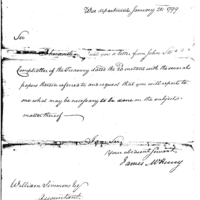 War department January 28. 1799
Sir
I send you a letter from John
Comptroller of the Treasury dated the instant with the several
papers therein referred to and request that you will report to
me what may be necessary to be done on the subject
matter thereof
I am Sir
Your obedient Servant
James McHenry
William Simmons Esq
Accountant